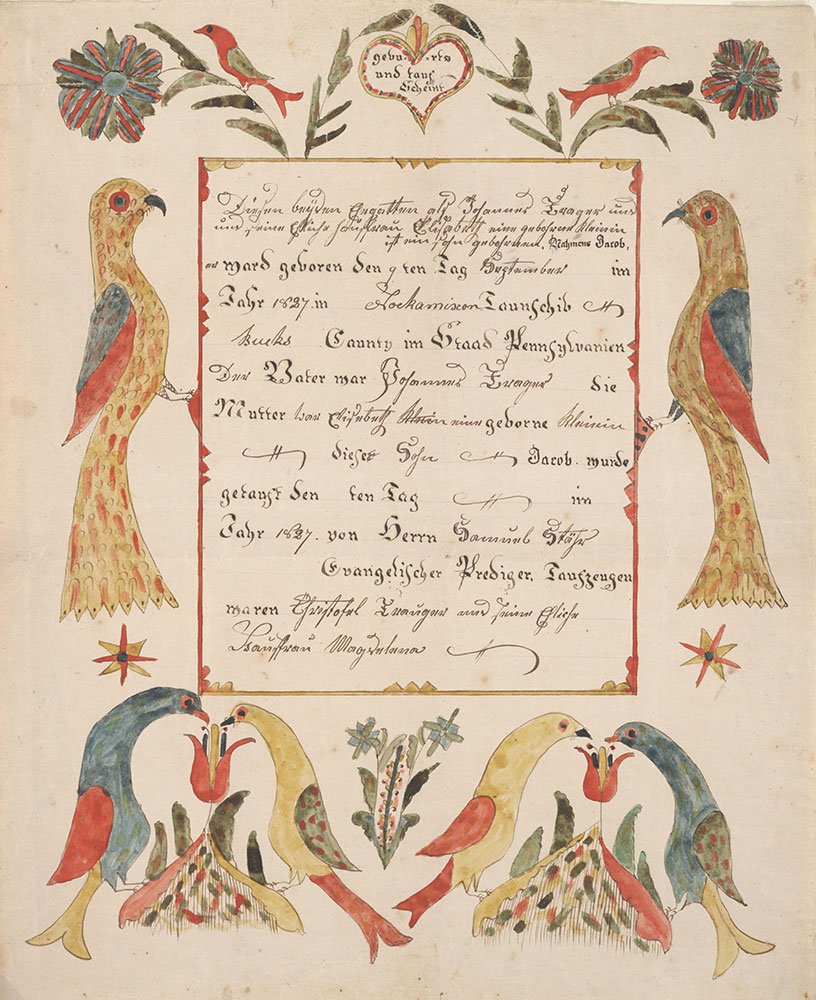 gebu rts
und tauf
Schein
Diesen beyden Ehgatten als Johannes Trager und
und seine Ehliche Hausfrau Elisabeth eine gebohrne Kleinin
ist ein sohn gebohren, Nahmens Jacob,
er ward geboren den 9 ten Tag September im
Jahr 1827. in Nockamixon Taunschib
Bucks Caunty im Staad Pennsylvanien
Der Vater war Johannes Trager die
Mutter war Elisabeth Klein eine geborne Kleinin
dieser Sohn Jacob. wurde
getauft den ten Tag im
Jahr 1827. von Herrn Samuel Stähr
Evangelischer Prediger, Taufzeugen
waren Christofel Trauger und seine Ehliche
Hausfrau Magdelena